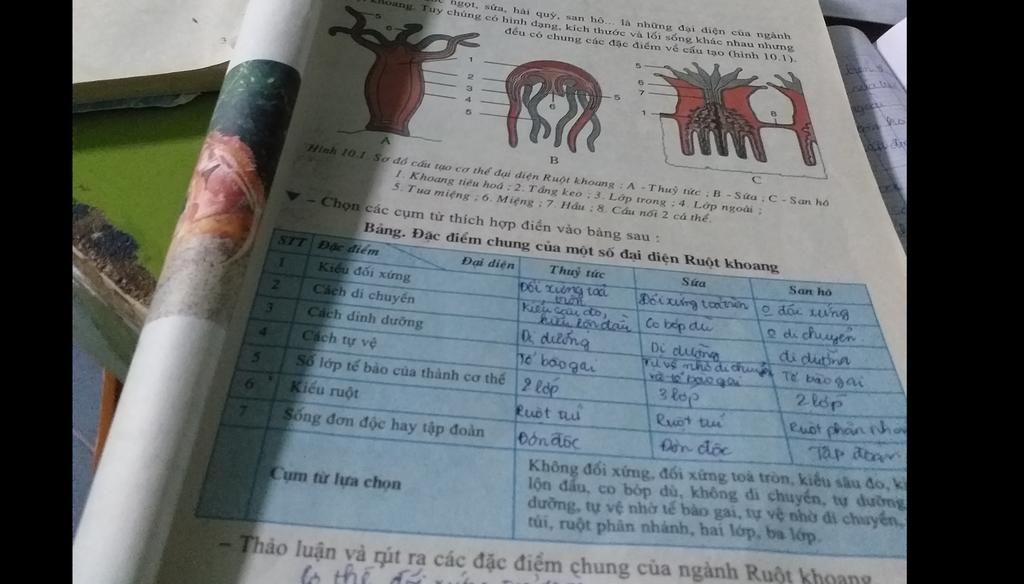 ngọt, sứa, hải quỳ, san hô... là những đại diện của ngành
khoang. Tuy chúng có hình dạng, kích thước và lối sống khác nhau nhưng
đều có chung các đặc điểm về cấu tạo (hình 10.1).
5
6
1
2
3
4
5
5
6
5
6
7
1
8
A
B
C
Hình 10.1. Sơ đồ cấu tạo cơ thể đại diện Ruột khoang : A - Thuỷ tức ; B - Sứa ; C - San hô
1. Khoang tiêu hoá ; 2. Tầng keo ; 3. Lớp trong ; 4. Lớp ngoài ;
5. Tua miệng ; 6. Miệng ; 7. Hầu ; 8. Cầu nối 2 cá thể.
▼ - Chọn các cụm từ thích hợp điền vào bảng sau :
Bảng. Đặc điểm chung của một số đại diện Ruột khoang
STT Đặc điểm Đại diện Thuỷ tức Sứa San hô
1 Kiểu đối xứng Đối xứng toả tròn Đối xứng toả tròn 0 đối xứng
2 Cách di chuyển Kiểu sâu đo, kiểu lộn đầu Co bóp dù 0 di chuyển
3 Cách dinh dưỡng Dị dưỡng Dị dưỡng dị dưỡng
4 Cách tự vệ Tế bào gai Tự vệ nhờ di chuyển và tế bào gai Tế bào gai
5 Số lớp tế bào của thành cơ thể 2 lớp 3 lớp 2 lớp
6 Kiểu ruột Ruột túi Ruột túi Ruột phân nhá
7 Sống đơn độc hay tập đoàn Đơn độc Đơn độc Tập đoàn
Cụm từ lựa chọn
Không đối xứng, đối xứng toả tròn, kiểu sâu đo, k
lộn đầu, co bóp dù, không di chuyển, tự dưỡng,
dưỡng, tự vệ nhờ tế bào gai, tự vệ nhờ di chuyển,
túi, ruột phân nhánh, hai lớp, ba lớp.
- Thảo luận và rút ra các đặc điểm chung của ngành Ruột khoang
Cơ thể đối xứng